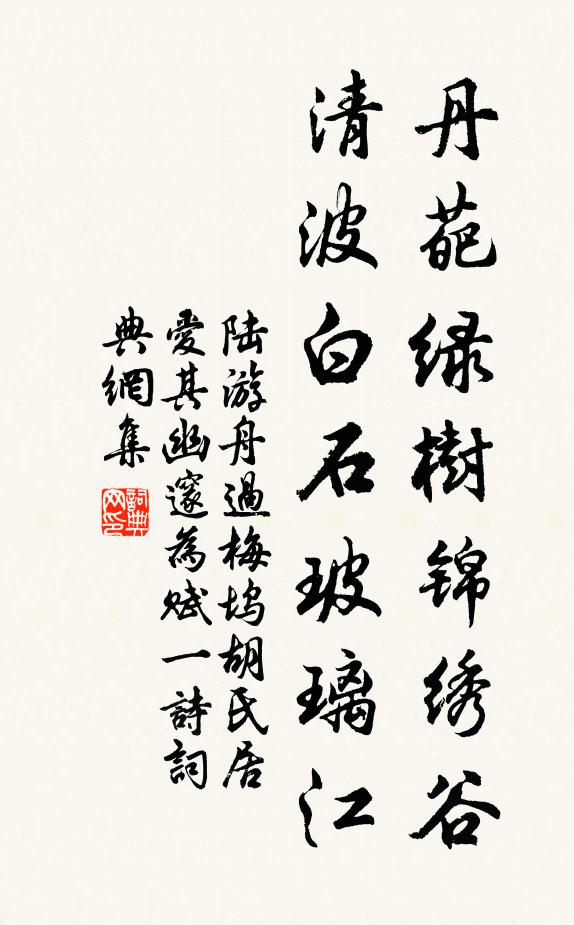 丹葩绿樹锦绣谷
清波白石玻璃江
陆游舟過梅坞胡氏居
愛其幽邃為赋一詩詞
典網集
詞典网印